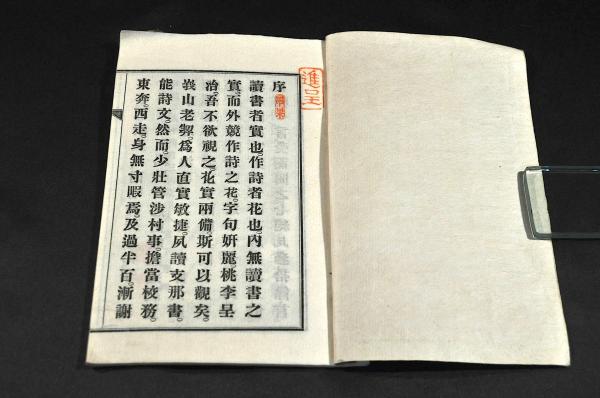 進呈
序
讀書者實也、作詩者花也、內無讀書之
實、而外競作詩之花、字句妍麗桃李呈
治、吾不欲視之、花實兩備斯可以觀矣。
山老禦、爲人直實敏捷、夙讀支那書。
能詩文、然而少壯管涉村事、擔當校務。
東奔西走、身無寸暇焉、及過半百、漸謝